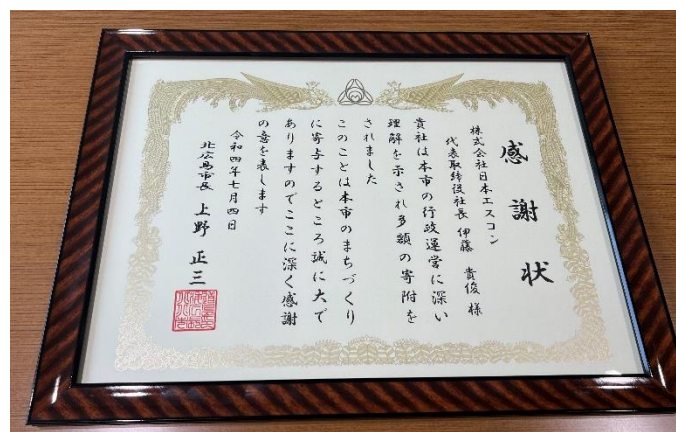 感謝状
株式会社日本エスコン
代表取締役社長 伊藤 貴俊 様
貴社は本市の行政運営に深い
理解を示され多額の寄附を
されました
このことは本市のまちづくり
に寄与するところ誠に大で
ありますのでここに深く感謝
の意を表します
令和四年七月四日
北広島市長 上野 正三